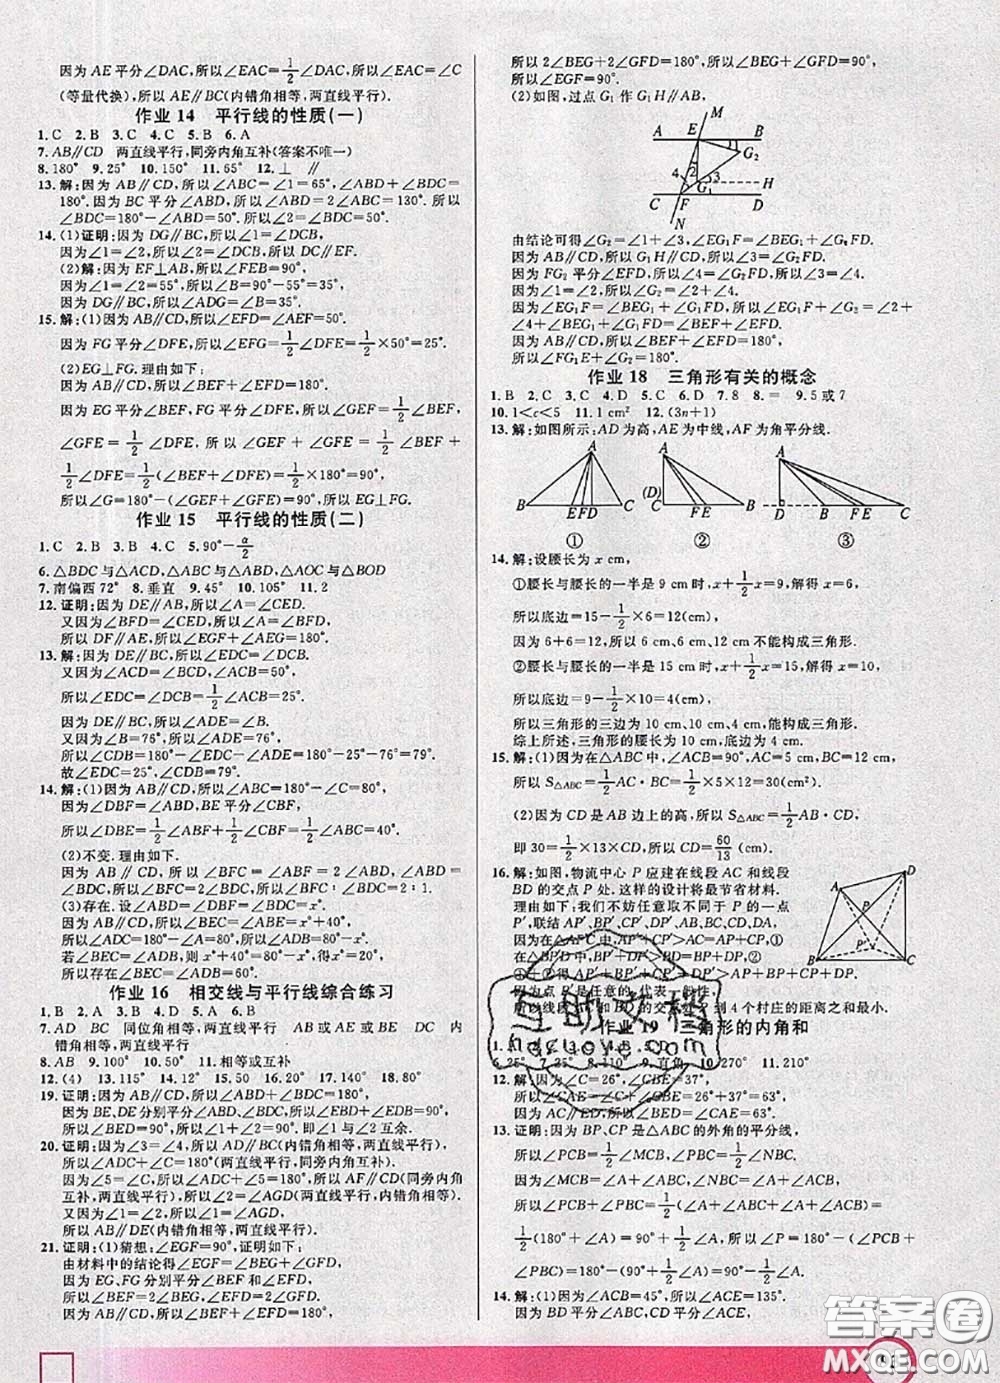 因为AE平分∠DAC,所以∠EAC=1/2∠DAC,所以∠EAC=∠C
(等量代换),所以AE∥BC(内错角相等,两直线平行).
作业14 平行线的性质(一)
1.C 2.B 3.C 4.C 5.B 6.A
7.AB∥CD 两直线平行,同旁内角互补(答案不唯一)
8.180° 9.25° 10.150° 11.65° 12.⊥ ∥
13.解:因为AB∥CD,所以∠ABC=∠1=65°,∠ABD+∠BDC=
180°.因为BC平分∠ABD,所以∠ABD=2∠ABC=130°.所以
∠BDC=180°-∠ABD=50°.所以∠2=∠BDC=50°.
14.(1)证明:因为DG∥BC,所以∠1=∠DCB,
因为∠1=∠2,所以∠2=∠DCB,所以DC∥EF.
(2)解:因为EF⊥AB,所以∠FEB=90°,
因为∠1=∠2=55°,所以∠B=90°-55°=35°,
因为DG∥BC,所以∠ADG=∠B=35°
15.解:(1)因为AB∥CD,所以∠EFD=∠AEF=50°.
因为FG平分∠DFE,所以∠EFG=1/2∠DFE=1/2×50°=25°.
(2)EG⊥FG.理由如下:
因为AB∥CD,所以∠BEF+∠EFD=180°.
因为EG平分∠BEF,FG平分∠DFE,所以∠GEF=1/2∠BEF,
∠GFE=1/2∠DFE,所以∠GEF+∠GFE=1/2∠BEF+
1/2∠DFE=1/2(∠BEF+∠DFE)=1/2×180°=90°,
所以∠G=180°-(∠GEF+∠GFE)=90°,所以EG⊥FG.
作业15 平行线的性质(二)
1.C 2.B 3.B 4.C 5.90°-α/2
6.△BDC与△ADC,△ABD与△ABC,△AOC与△BOD
7.南偏西72° 8.垂直 9.45° 10.105° 11.2
12.证明:因为DE∥AB,所以∠A=∠CED.
又因为∠BFD=∠CED,所以∠BFD=∠A=∠CED,
所以DF∥AE,所以∠EGF+∠AEG=180°.
13.解:因为DE∥BC,所以∠EDC=∠DCB.
又因为∠ACD=∠BCD=1/2∠ACB,∠ACB=50°,
所以∠EDC=∠DCB=1/2∠ACB=25°.
因为DE∥BC,所以∠ADE=∠B.
又因为∠B=76°,所以∠ADE=76°,
所以∠CDB=180°-∠EDC-∠ADE=180°-25°-76°=79°.
故∠EDC=25°,∠CDB=79°.
14.解:(1)因为AM∥BN,所以∠ABC=180°-∠C=80°,
因为∠DBF=∠ABD,BE平分∠CBF,
所以∠DBE=1/2∠ABF+1/2∠CBF=1/2∠ABC=40°.
(2)不变.理由如下.
因为AB∥CD,所以∠BFC=∠ABF=2∠ABD,∠ABD=
∠BDC,所以∠BFC=2∠BDC,所以∠BFC:∠BDC=2:1.
(3)存在.设∠ABD=∠DBF=∠BDC=x°.
因为AB∥CD,所以∠BEC=∠ABE=x°+40°.
因为∠ADC=180°-∠A=80°,所以∠ADB=80°-x°.
若∠BEC=∠ADB,则x°+40°=80°-x°,得x°=20°.
所以存在∠BEC=∠ADB=60°.
作业16 相交线与平行线综合练习
1.B 2.B 3.C 4.D 5.A 6.B
7.AD BC 同位角相等,两直线平行 AB或AE或BE DC 内
错角相等,两直线平行
8.AB 9.100° 10.55° 11.相等或互补
12.(4) 13.115° 14.12° 15.50° 16.20° 17.140° 18.80°
19.证明:因为AB∥CD,所以∠ABD+∠BDC=180°.
因为BE,DE分别平分∠ABD,∠BDC,所以∠EBD+∠EDB=90°,
因为∠1=∠ABE,所以∠1+∠2=90°.即∠1与∠2互余.
20.证明:因为∠3=∠4,所以AD∥BC(内错角相等,两直线平行),
所以∠ADC+∠C=180°(两直线平行,同旁内角互补).
因为∠5=∠C,所以∠ADC+∠5=180°,所以AF∥CD(同旁内角
互补,两直线平行),所以∠2=∠AGD(两直线平行,内错角相等).
又因为∠1=∠2,所以∠1=∠AGD,
所以AB∥DE(内错角相等,两直线平行).
21.证明:(1)猜想:∠EGF=90°,证明如下:
由材料中的结论得∠EGF=∠BEG+∠GFD,
因为EG,FG分别平分∠BEF和∠EFD,
所以∠BEF=2∠BEG,∠EFD=2∠GFD,
因为AB∥CD,所以∠BEF+∠EFD=180°,
所以2∠BEG+2∠GFD=180°,所以∠BEG+∠GFD=90°,
所以∠EGF=90°.
(2)如图,过点G₁作G₁H∥AB,
M
A E B
G₂
4 2 3 H
G₁
C F D
N
由结论可得∠G₂=∠1+∠3,∠EG₁F=∠BEG₁+∠G₁FD.
因为AB∥CD,所以G₁H∥CD,所以∠3=∠G₂FD.
因为FG₂平分∠EFD,所以∠4=∠G₂FD,所以∠3=∠4.
因为∠1=∠2,所以∠G₂=∠2+∠4.
因为∠EG₁F=∠BEG₁+∠G₁FD,所以∠EG₁F+∠G₂=∠2+
∠4+∠BEG₁+∠G₁FD=∠BEF+∠EFD.
因为AB∥CD,所以∠BEF+∠EFD=180°,
所以∠FG₁E+∠G₂=180°.
作业18 三角形有关的概念
1.B 2.C 3.C 4.D 5.C 6.D 7.8 8.= 9.5或7
10.1<c<5 11.1 cm² 12.(3n+1)
13.解:如图所示,AD为高,AE为中线,AF为角平分线.
A A A
B EFD C (D)C FE B D B FE C
① ② ③
14.解:设腰长为x cm,
①腰长与腰长的一半是9 cm时,x+1/2x=9,解得x=6,
所以底边=15-1/2×6=12(cm),
因为6+6=12,所以6 cm,6 cm,12 cm不能构成三角形.
②腰长与腰长的一半是15 cm时,x+1/2x=15,解得x=10,
所以底边=9-1/2×10=4(cm),
所以三角形的三边为10 cm,10 cm,4 cm,能构成三角形.
综上所述,三角形的腰长为10 cm,底边为4 cm.
15.解:(1)因为在△ABC中,∠ACB=90°,AC=5 cm,BC=12 cm,
所以S△ABC=1/2AC·BC=1/2×5×12=30(cm²).
(2)因为CD是AB边上的高,所以S△ABC=1/2AB·CD,
即30=1/2×13×CD,所以CD=60/13(cm).
16.解:如图,物流中心P应建在线段AC和线段
BD的交点P处.这样的设计将最节省材料.
理由如下:我们不妨任意取不同于P的一点
P′,联结AP′,BP′,CP′,DP′,AB,BC,CD,DA,
因为在△ACP′中,AP′+CP′>AC=AP+CP,①
在△BDP′中,BP′+DP′>BD=BP+DP,②
①+②得AP′+BP′+CP′+DP′>AP+CP+BP+DP.
因为点P′是任意的,代表一般性,
所以线段AC和BD的交点处P到4个村庄的距离之和最小.
D
A
P
P′
B C
作业19 三角形的内角和
6.25° 8.110° 9.直角 10.270° 11.210°
12.解:因为∠C=26°,∠CBE=37°,
所以∠CAE=∠C+∠CBE=26°+37°=63°,
因为AC∥ED,所以∠BED=∠CAE=63°.
13.证明:因为BP,CP是△ABC的外角的平分线,
所以∠PCB=1/2∠MCB,∠PBC=1/2∠NBC.
因为∠MCB=∠A+∠ABC,∠NBC=∠A+∠ACB,
所以∠PCB+∠PBC=1/2(∠A+∠ABC+∠A+∠ACB)=
1/2(180°+∠A)=90°+1/2∠A,所以∠P=180°-(∠PCB+
∠PBC)=180°-(90°+1/2∠A)=90°-1/2∠A.
14.解:(1)因为∠ACB=45°,所以∠ACE=135°.
因为BD平分∠ABC,CD平分∠ACE,
互助文档
hdzuoye.com
答案圈
MXQE.COM